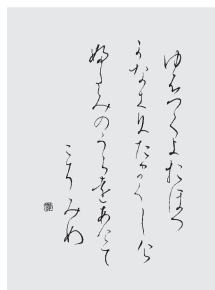 ゆふつくよおほつ
かなきをたまくしけ
ふたみのうらはあけて
こそみめ